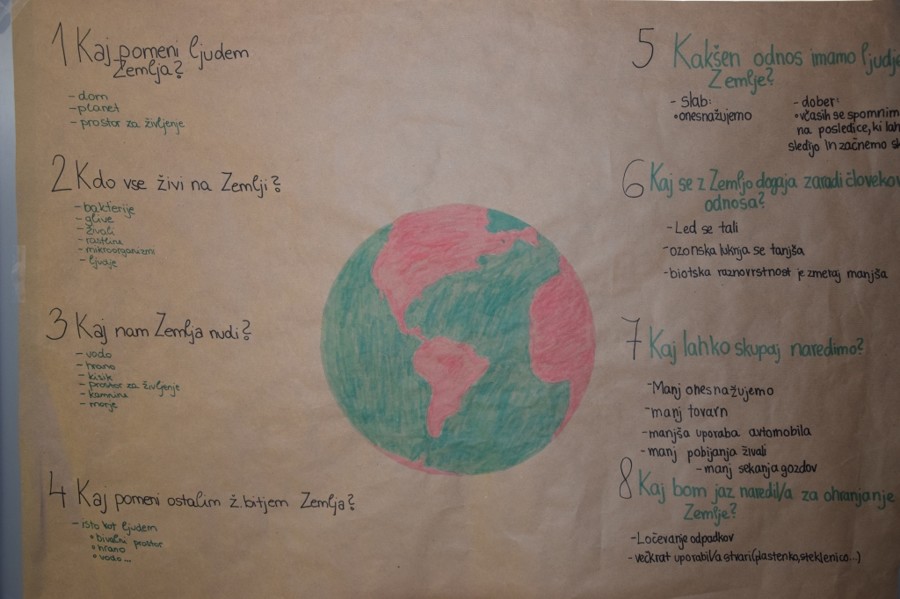 1 Kaj pomeni ljudem
Zemlja?
- dom
- planet
- prostor za življenje
2 Kdo vse živi na Zemlji?
- bakterije
- glive
- živali
- rastline
- mikroorganizmi
- ljudje
3 Kaj nam Zemlja nudi?
- vodo
- hrano
- kisik
- prostor za življenje
- kamnine
- morje
4 Kaj pomeni ostalim ž. bitjem Zemlja?
- isto kot ljudem
• bivalni prostor
• hrano
• vodo...
5 Kakšen odnos imamo ljudje
Zemlje?
- slab:
• onesnažujemo
- dober:
• včasih se spomnim
na posledice, ki lah
sledijo in začnemo sk
6 Kaj se z Zemljo dogaja zaradi človekov
odnosa?
- Led se tali
- ozonska luknja se tanjša
- biotska raznovrstnost je zmeraj manjša
7 Kaj lahko skupaj naredimo?
- Manj onesnažujemo
- manj tovarn
- manjša uporaba avtomobila
- manj pobijanja živali
- manj sekanja gozdov
8 Kaj bom jaz naredil/a za ohranjanje
Zemlje?
- Ločevanje odpadkov
- večkrat uporabil/a stvari (plastenka, steklenica...)